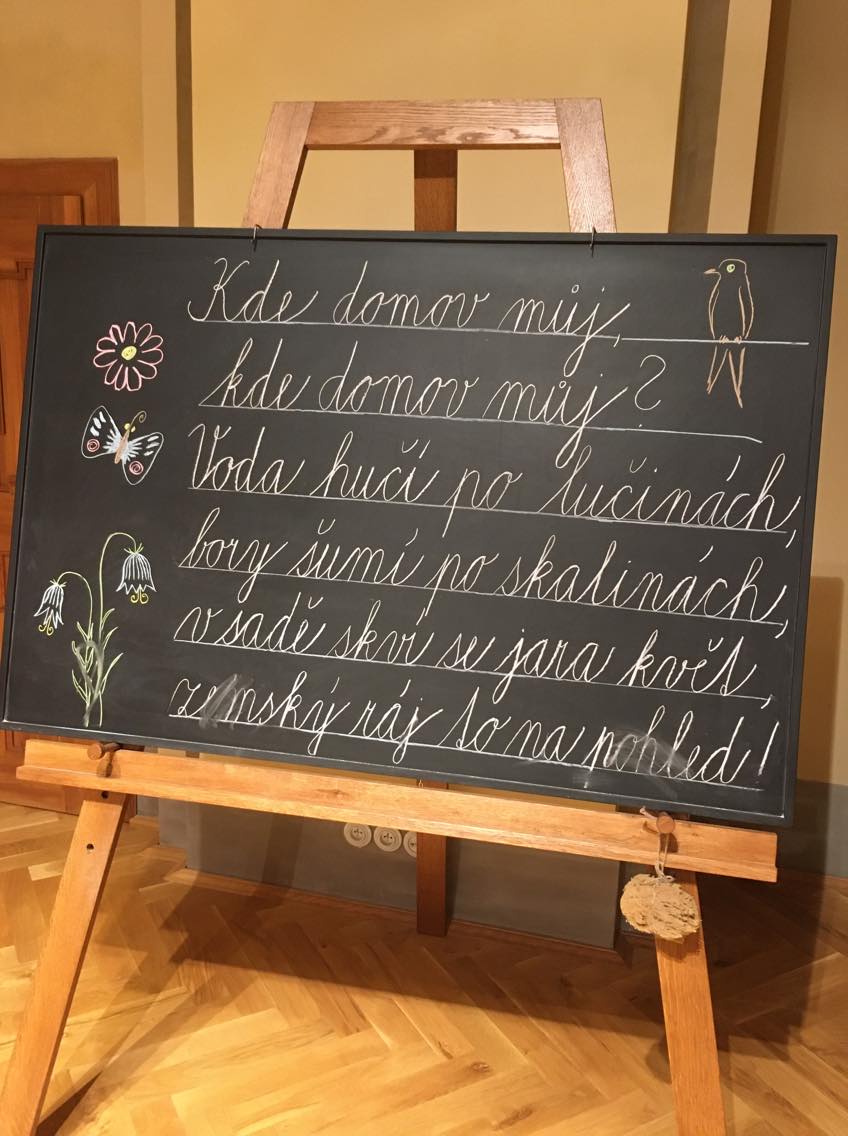 Kde domov můj,
kde domov můj?
Voda hučí po lučinách,
bory šumí po skalinách,
v sadě skví se jara květ,
zemský ráj to na pohled!